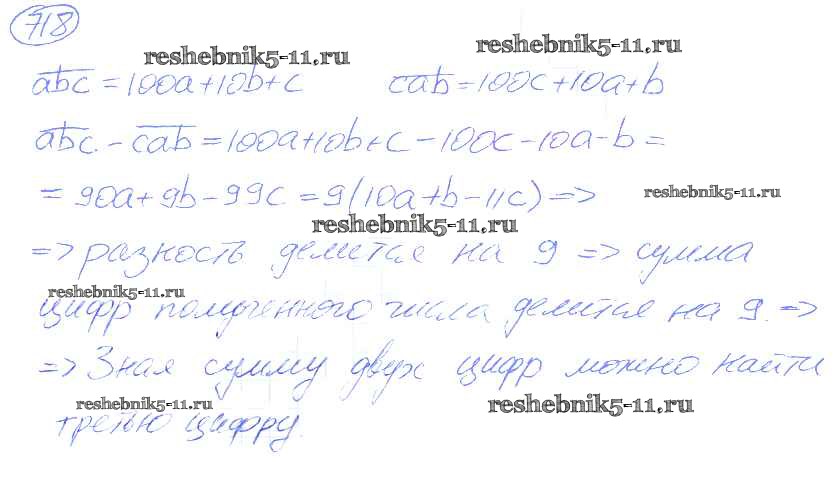 718
reshebnik5-11.ru
reshebnik5-11.ru
abc = 100a+10b+c cab = 100c+10a+b
abc. - cab = 100a+10b+c-100c-10a-b =
= 90a+9b-99c = 9(10a+b-11c) =>
reshebnik5-11.ru
reshebnik5-11.ru
=> разность делится на 9 => сумма
reshebnik5-11.ru
цифр полученного числа делится на 9. =>
=> Зная сумму двух цифр можно найти
reshebnik5-11.ru
reshebnik5-11.ru
третью цифру.